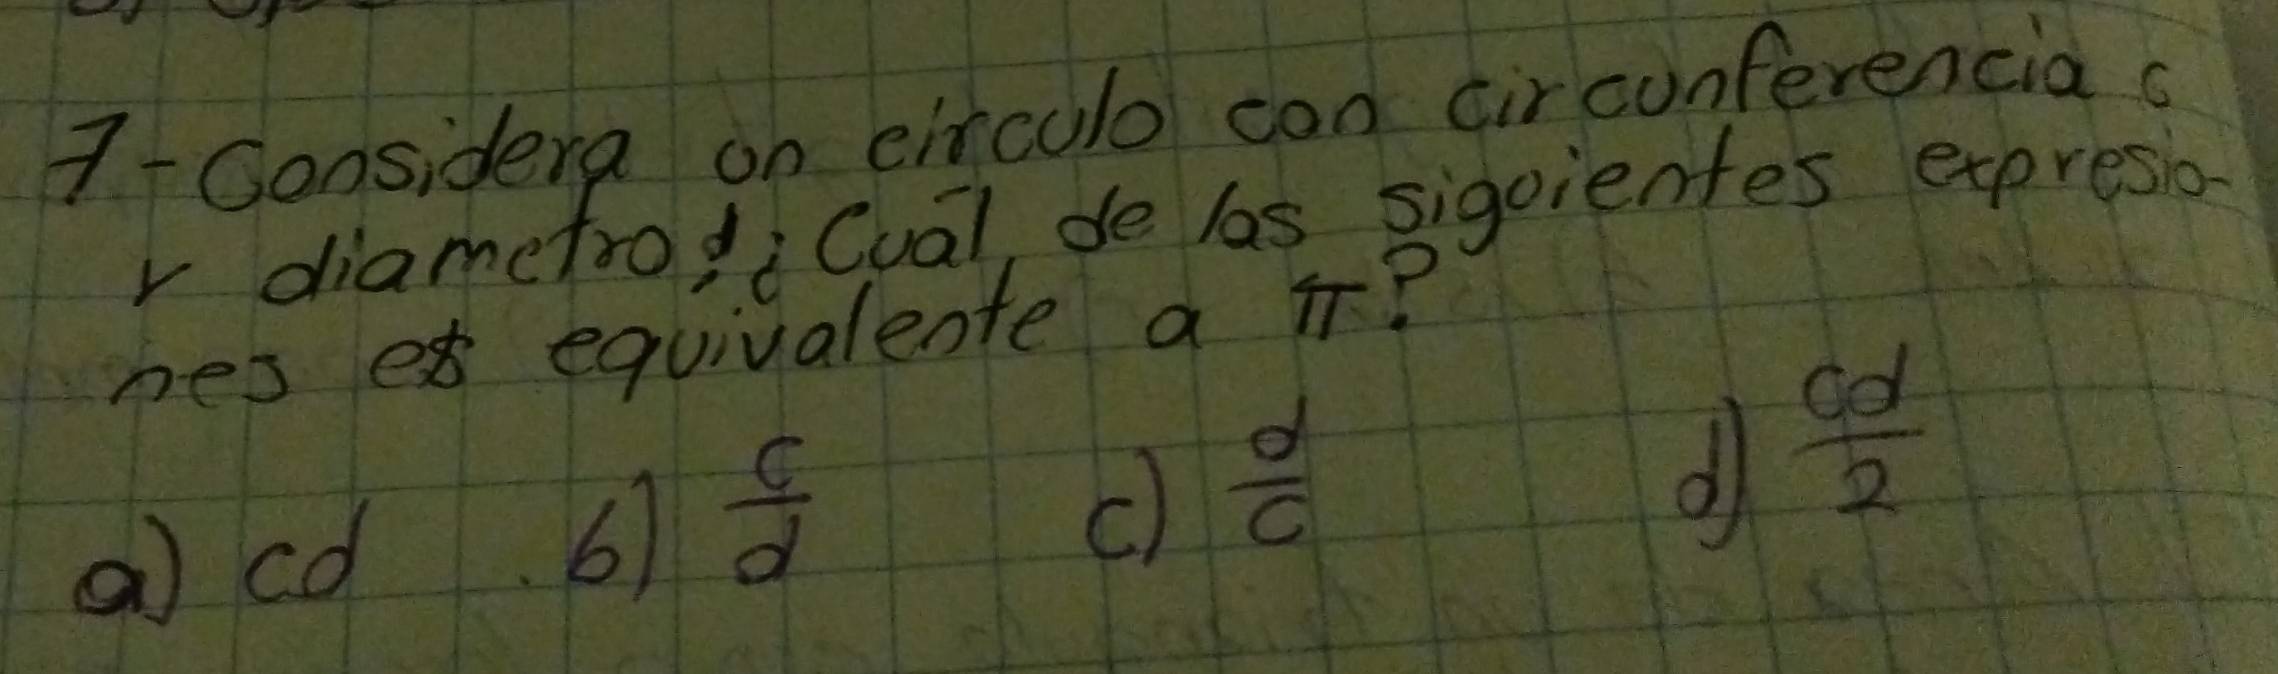 7-Considera un circulo con circunferencia c
y diametro d; ¿Cuál de las siguientes expresio-
nes es equivalente a π?
a) cd b) c/d c) d/c d) cd/2